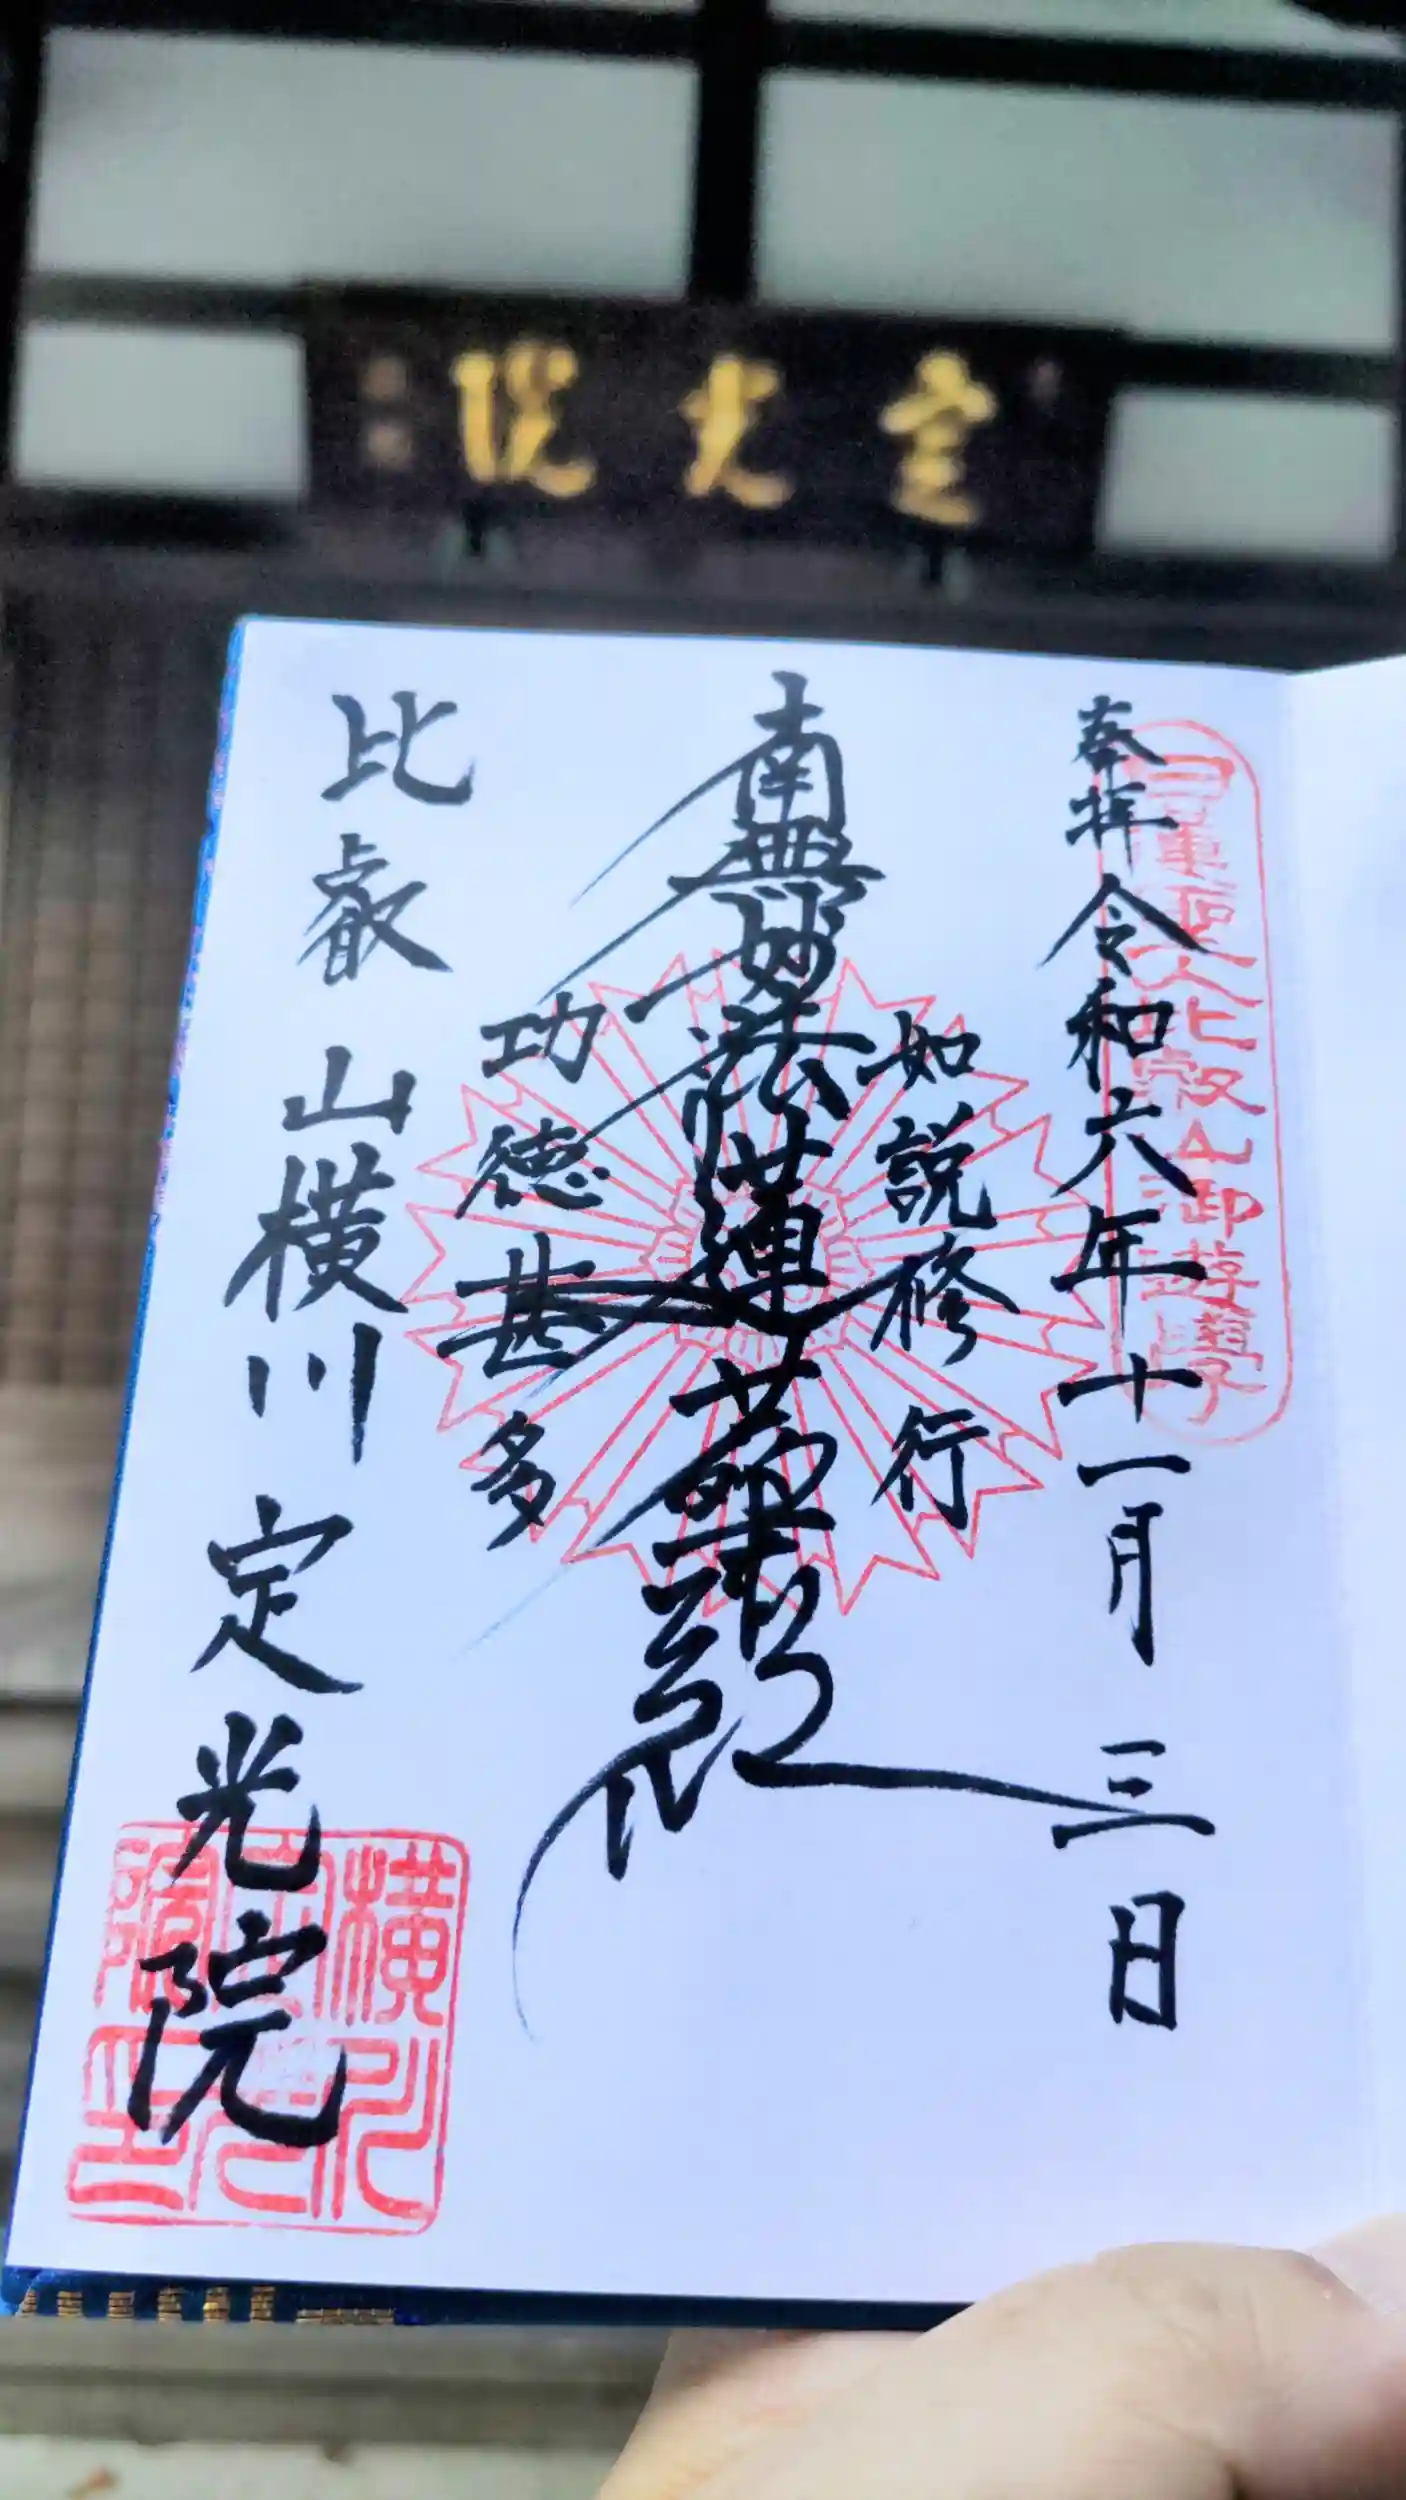 定光院
奉拝 令和六年十一月三日
日蓮聖人比叡山御遊学
如説修行
南無妙法蓮華経
功徳甚多
比叡山横川定光院
横川定光院印